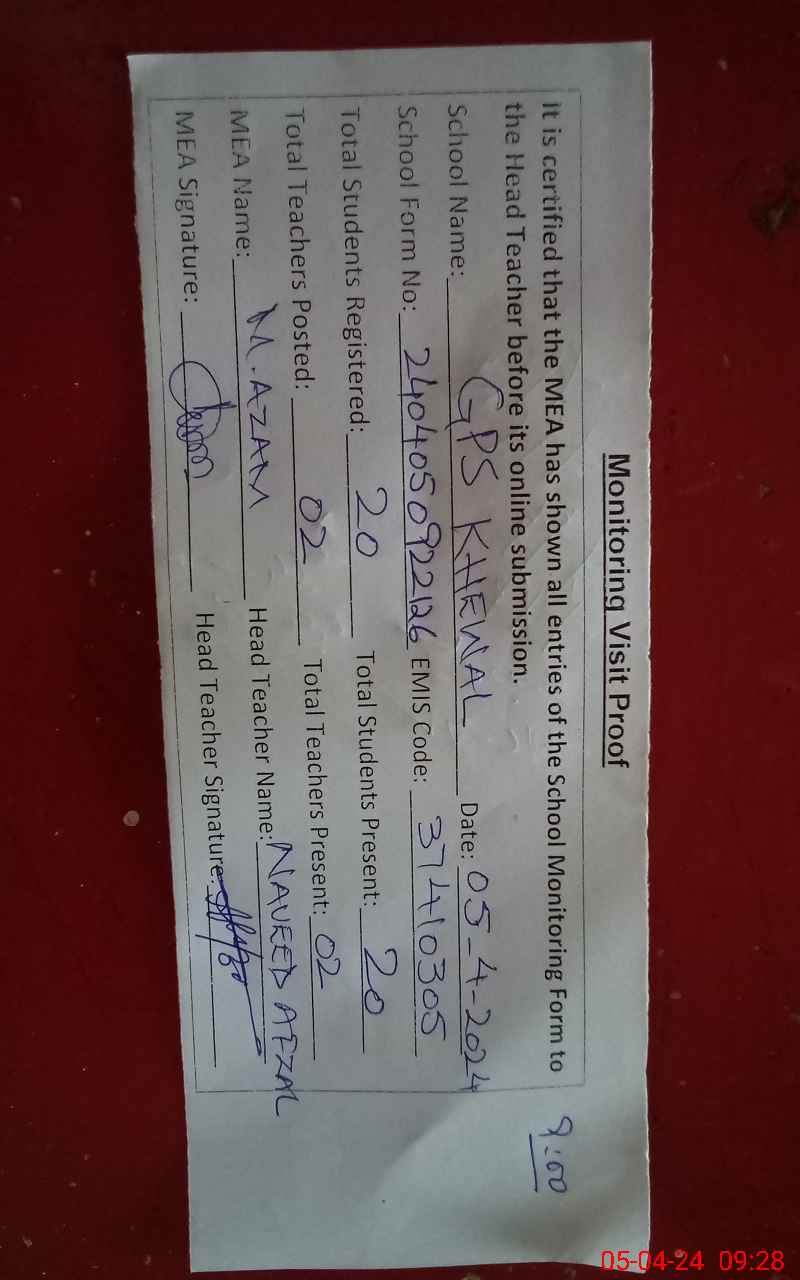 Monitoring Visit Proof
It is certified that the MEA has shown all entries of the School Monitoring Form to
the Head Teacher before its online submission.
9:00
School Name: GPS KHEWAL Date: 05-4-2024
School Form No: 240405092226 EMIS Code: 37410305
Total Students Registered: 20 Total Students Present: 20
Total Teachers Posted: 02 Total Teachers Present: 02
MEA Name: M.AZAM Head Teacher Name: NAVEED AFZAL
MEA Signature: Head Teacher Signature:
05-04-24 09:28